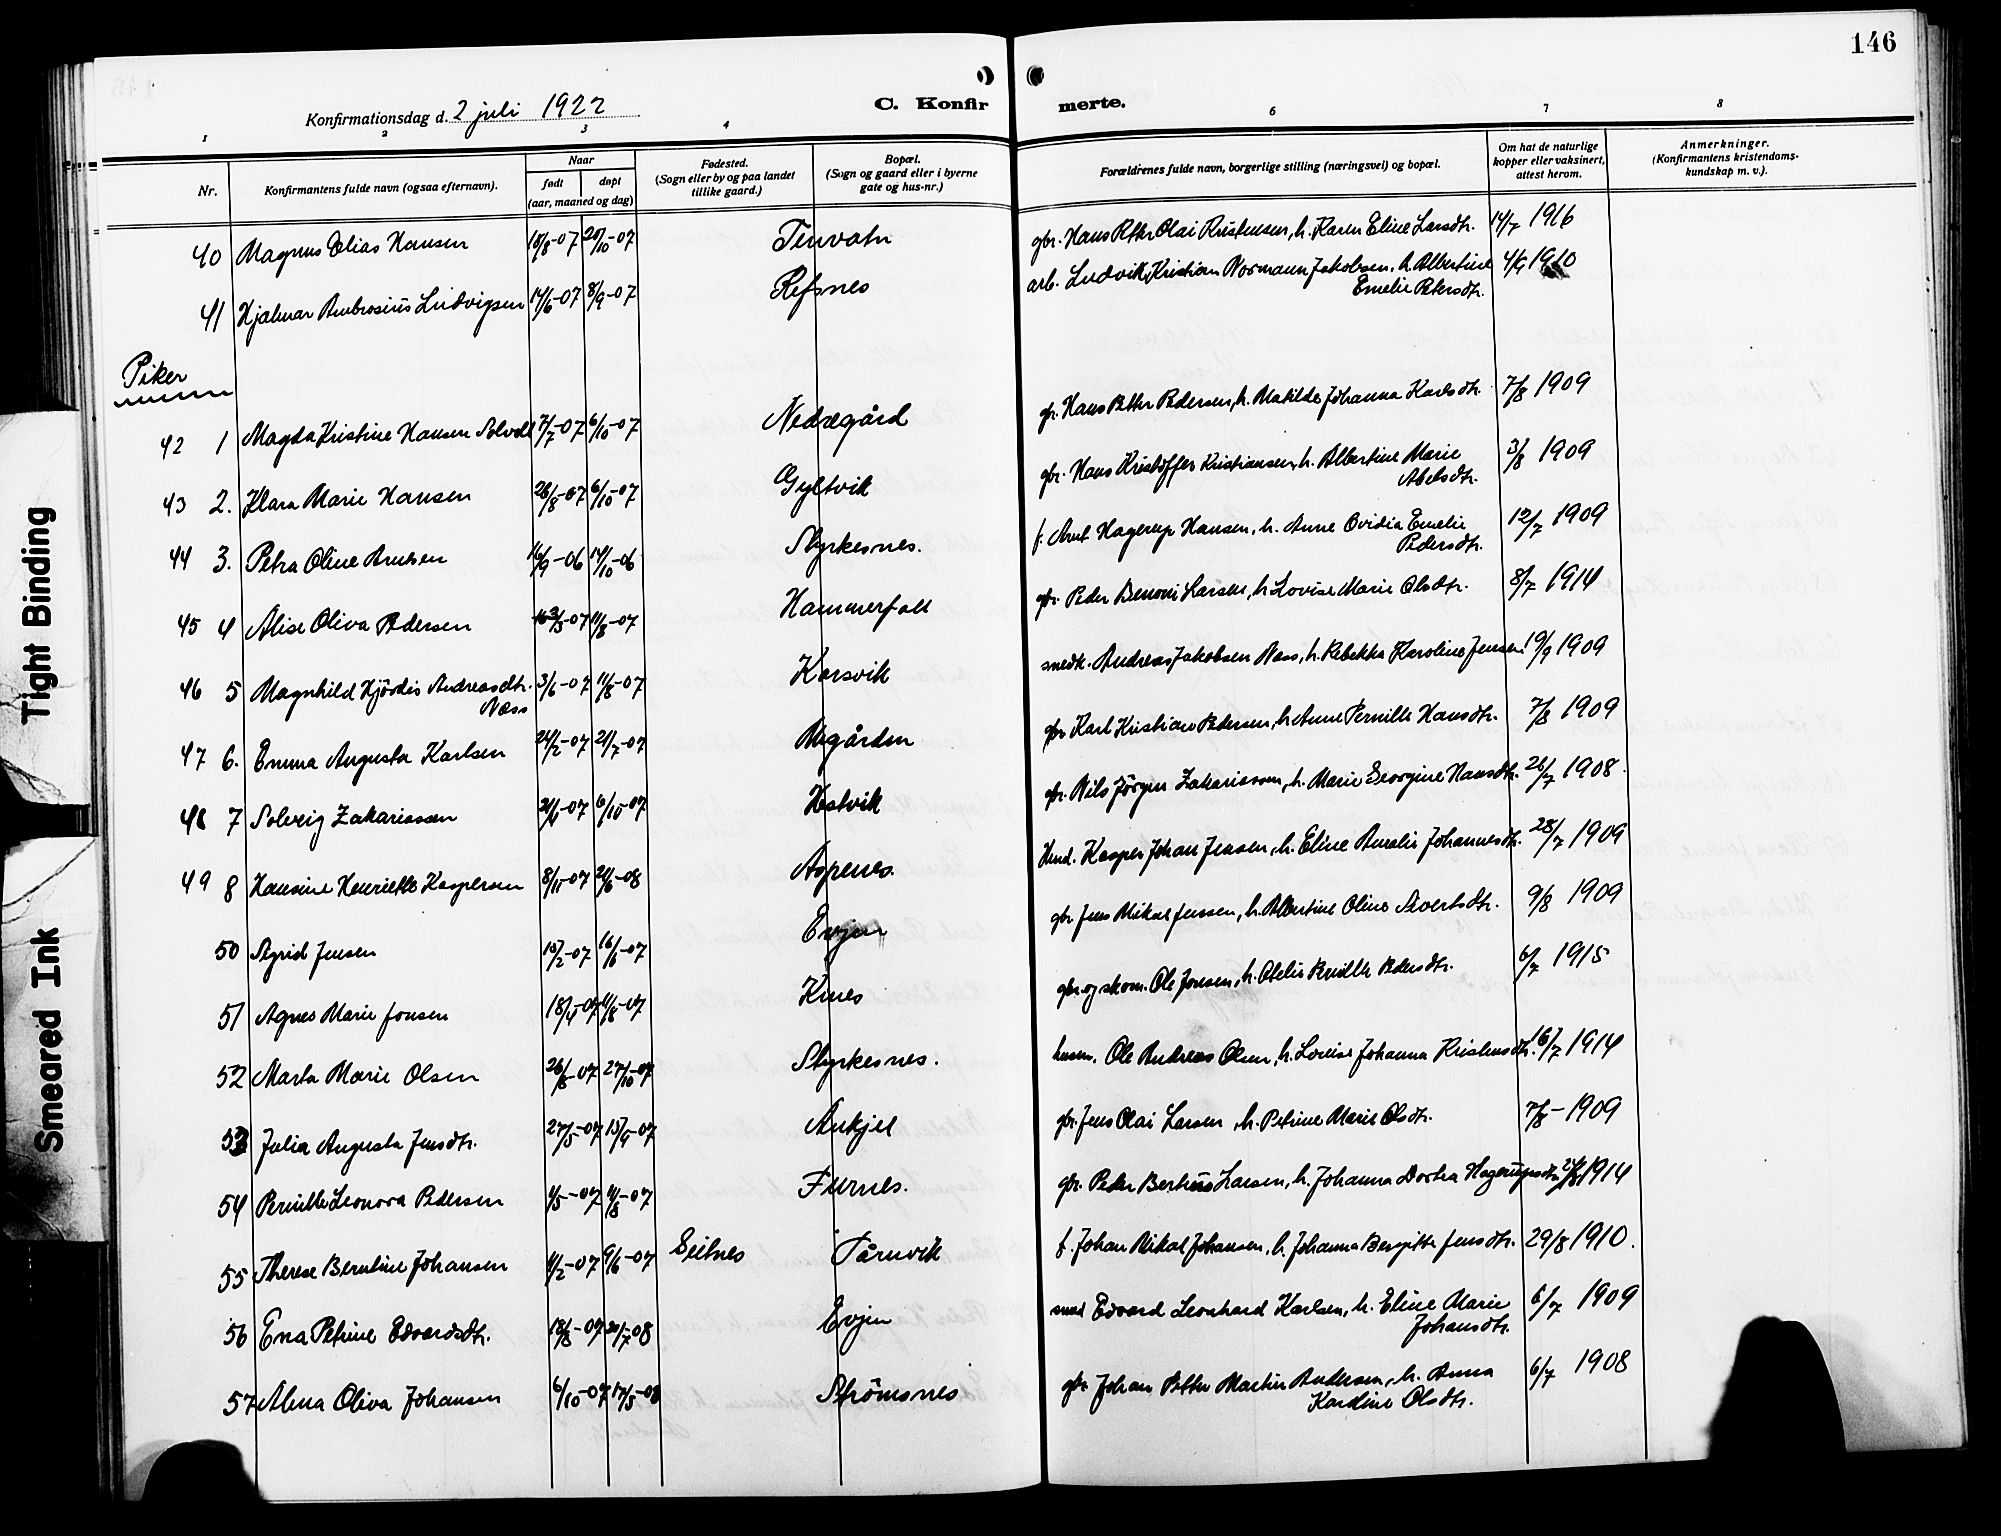 146
Konfirmationsdag d. 2 juli 1922
C. Konfir merte.
1 2 3 4 6 7 8
Nr.
Konfirmantens fulde navn (ogsaa efternavn).
Naar
født døpt
(aar, maaned og dag)
Fødested.
(Sogn eller by og paa landet
tillike gaard.)
Bopæl.
(Sogn og gaard eller i byerne
gate og hus-nr.)
Forældrenes fulde navn, borgerlige stilling (næringsvei) og bopæl.
Om hat de naturlige
kopper eller vaksinert,
attest herom.
Anmerkninger.
(Konfirmantens kristendoms-
kundskap m. v.).
40 Magnus Elias Hansen 18/8-07 20/10-07 Tenvatn gbr. Hans Olai Kristensen, h. Karen Eline Larsdtr. 14/7 1916
41 Hjalmar Ambrosius Ludvigsen 14/6-07 8/9-07 Refsnes arb. Ludvik Kristian Normann Jakobsen, h. Albertine 4/9 1910
Emelie Petersdtr.
Piker
42 1 Magda Kristine Hansen 7/7-07 6/10-07 Nedregård Hans Petter Pedersen, h. Matilde Johanna Karlsdtr. 7/8 1909
43 2. Klara Marie Hansen 26/8-07 6/10-07 Gyltvik gbr. Hans Kristoffer Kristiansen, h. Albertine Marie 3/8 1909
Abelsdtr.
44 3. Petra Oline Arntsen 16/9-06 14/10-06 Styrkesnes. f. Arnt Hagerup Hansen, h. Anne Ovidia Emelie 12/7 1909
Pedersdtr.
45 4 Alise Oliva Pedersen -07 11/8-07 Hammerfall gbr. Peder Benoni Larsen, h. Lovise Marie Olsdtr. 8/7 1914
46 5 Magnhild Hjördis Andreasdtr. 3/6-07 11/8-07 Korsvik snedk. Andreas Jakobsen Næss, h. Rebekka Karoline Jensen 19/9 1909
Næss
47 6. Emma Augusta Karlsen 24/2-07 21/7-07 gbr. Karl Kristian Pedersen, h. Anne Pernille Hansdtr. 7/8 1909
48 7 Solveig Zakariassen 6/10-07 Hestvik gbr. Nils Jörgen Zakariassen, h. Marie Georgine Hansdtr. 26/7 1908.
49 8 Hansine Henriette Kaspersen 8/11-07 21/6-08 Aspenes. Kasper Johan Jensen, h. Eline Amalie Johannesdtr. 28/7 1909
50 Sigrid Jensen 15/2-07 16/6-07 Evjen gbr. Jens Mikal Jenssen, h. Albertine Oline Sivertsdtr. 9/8 1909
51 Agnes Marie Jonsen 18/4-07 11/8-07 Kines gbr. og skom. Ole Jonsen, h. Pernille Pedersdtr. 6/7 1915
52 Marta Marie Olsen 26/8-07 27/10-07 Styrkesnes. husm. Ole Andreas Olsen, h. Lovise Johanna Kristensdtr. 16/7 1914
53 Julia Augusta Jensdtr. 27/5-07 15/9-07 Ankjel gbr. Jens Olai Larsen, h. Petrine Marie Olsdtr. 7/8-1909
54 Pernille Leonora Pedersen 4/5-07 11/8-07 Furnes. gbr. Peder Bertius Larsen, h. Johanna Dortea Hagerupsdtr. 1914
55 Therese Berntine Johansen 11/2-07 9/6-07 Seines Tårnvik f. Johan Mikal Johansen, h. Johanna Bergitte Jensdtr. 29/8 1910.
56 Ena Petrine Edvardsdtr. 18/8-07 -08 Evjen smed Edvard Leonhard Karlsen, h. Eline Marie 6/7 1909
Johansdtr.
57 Alma Oliva Johansen 6/10-07 17/5-08 Strömsnes gbr. Johan Petter Martin Andersen, h. Anna 6/7 1908
Kardine Olsdtr.
Tight Binding
Smeared Ink